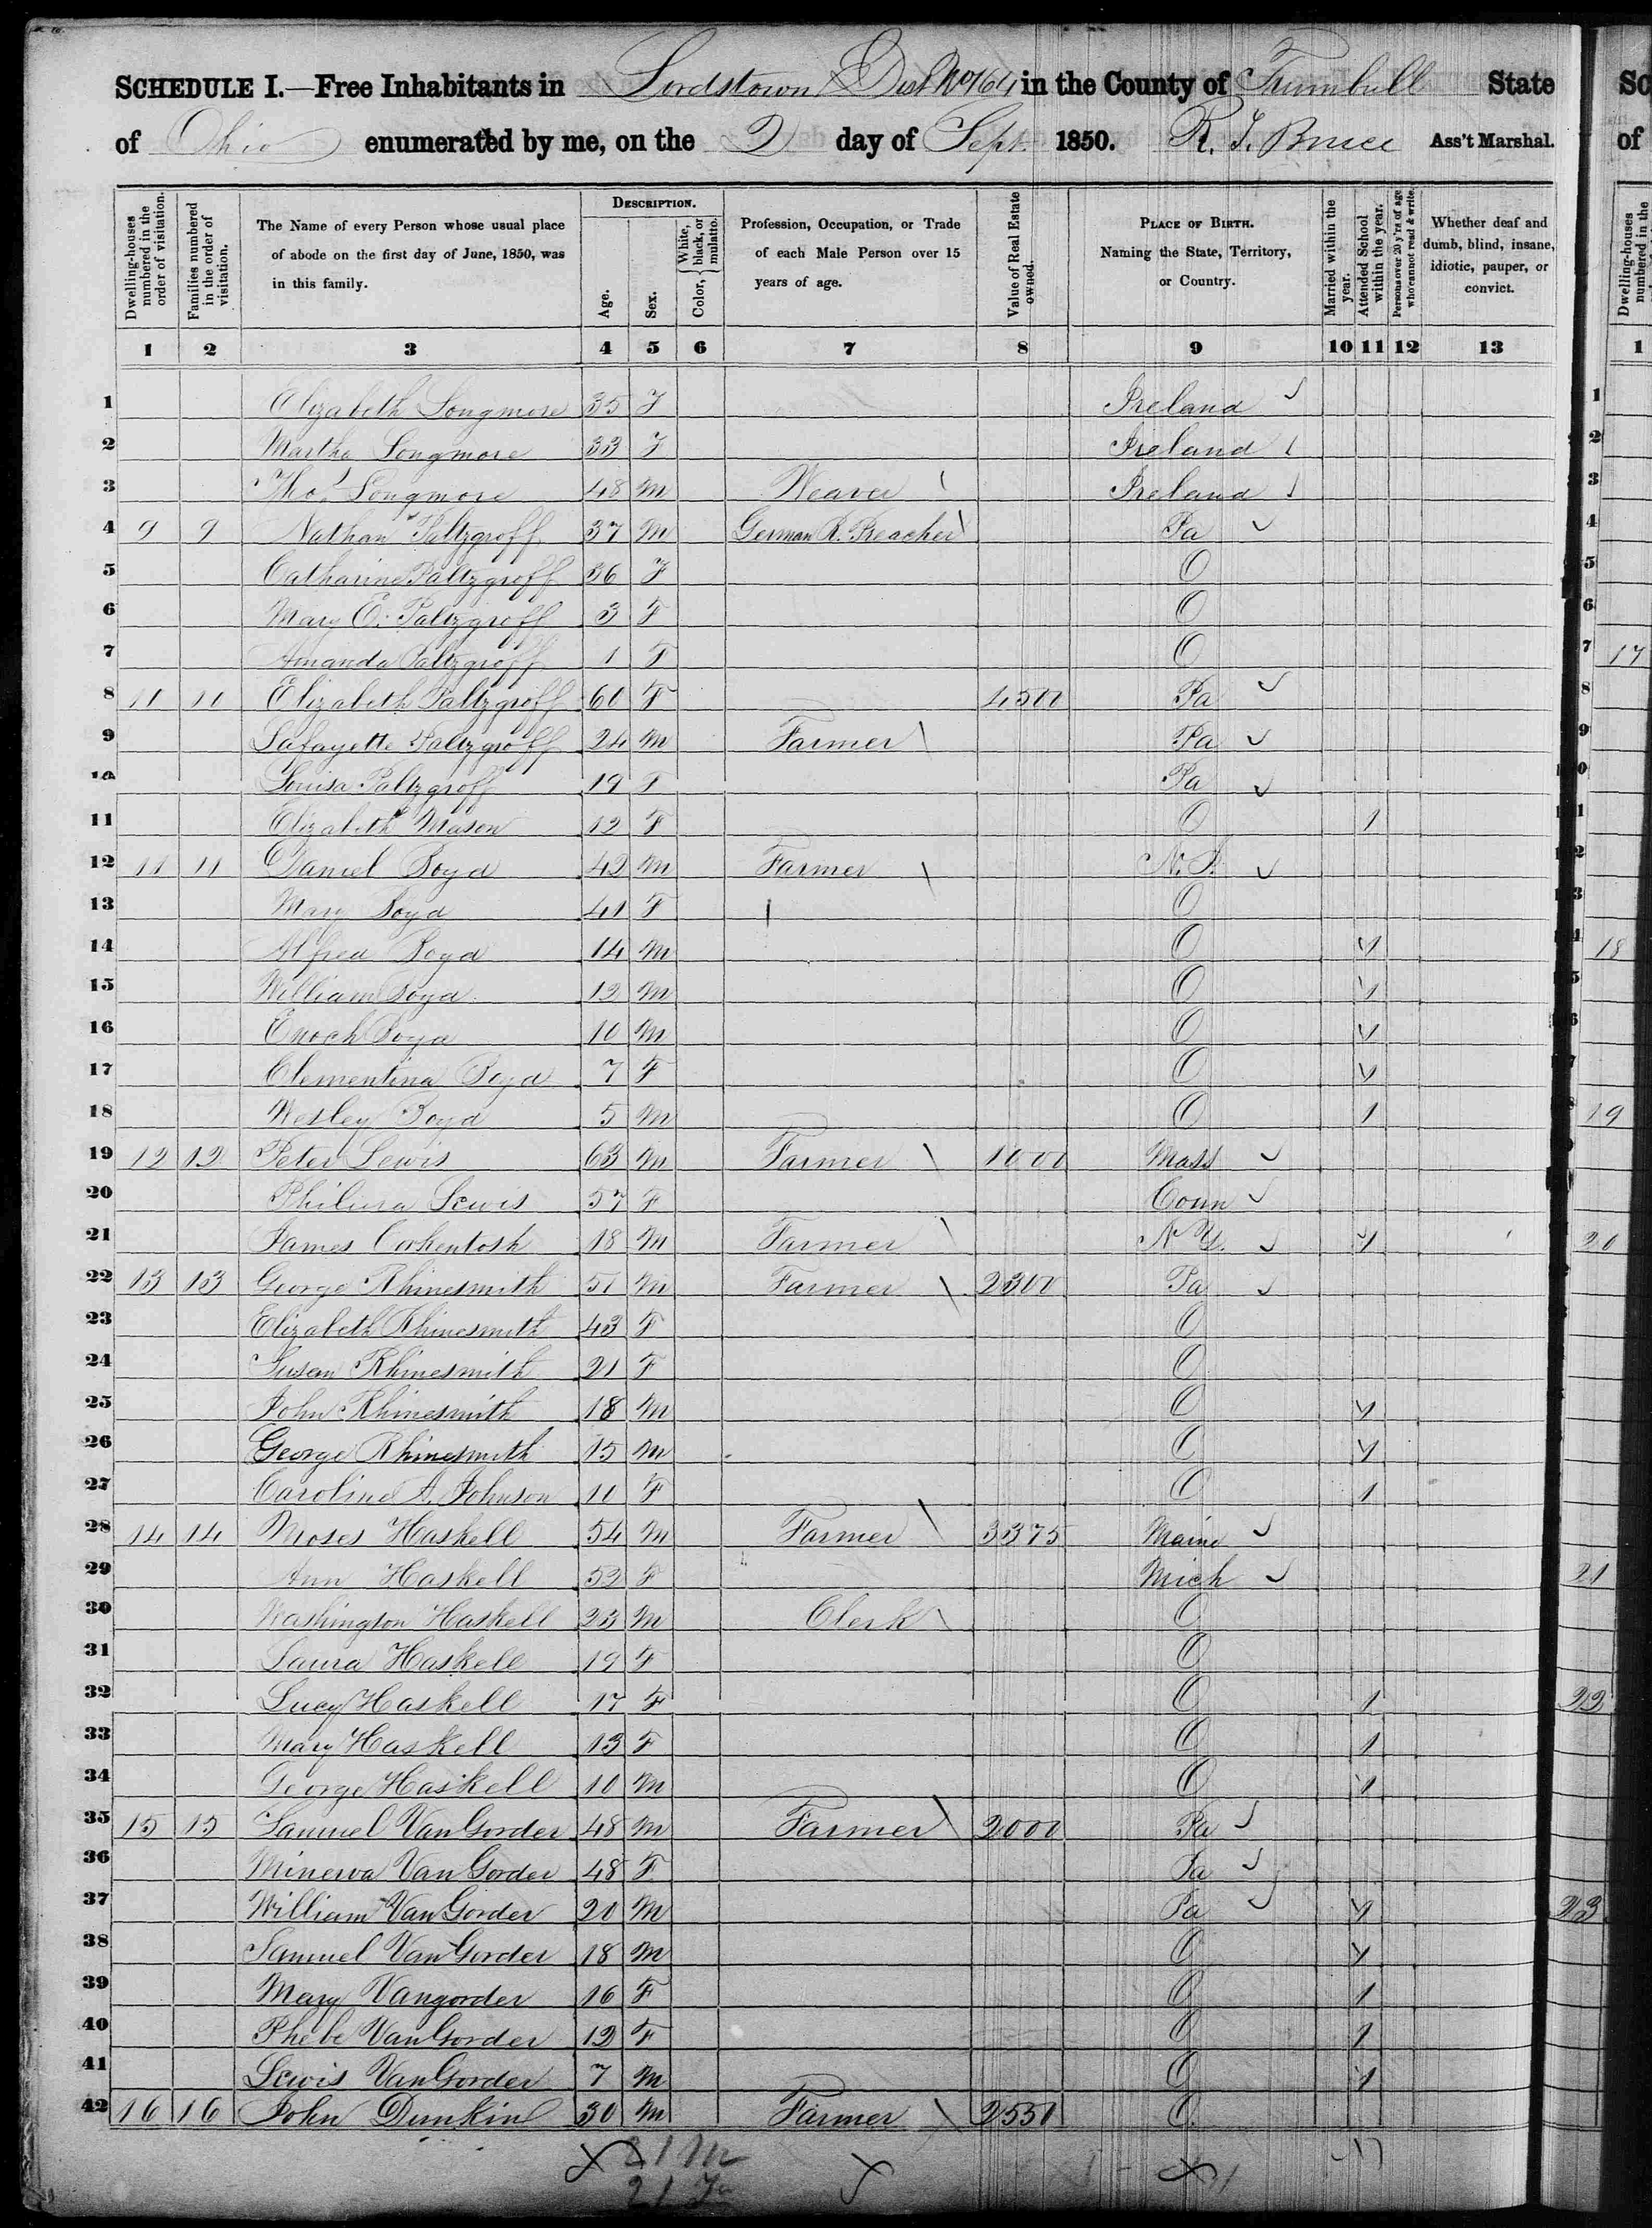 SCHEDULE I.—Free Inhabitants in Lordstown Dist No 164 in the County of Trumbull State
of Ohio enumerated by me, on the 2 day of Sept. 1850. R. J. Bruce Ass't Marshal.
Dwelling-houses numbered in the order of visitation.
Families numbered in the order of visitation.
The Name of every Person whose usual place of abode on the first day of June, 1850, was in this family.
DESCRIPTION.
Age.
Sex.
Color, { White, black, or mulatto.
Profession, Occupation, or Trade of each Male Person over 15 years of age.
Value of Real Estate owned.
PLACE OF BIRTH. Naming the State, Territory, or Country.
Married within the year.
Attended School within the year.
Persons over 20 y'rs of age who cannot read & write.
Whether deaf and dumb, blind, insane, idiotic, pauper, or convict.
1 2 3 4 5 6 7 8 9 10 11 12 13
1 Elizabeth Longmore 35 F Ireland
2 Martha Longmore 33 F Ireland
3 Thos Longmore 48 M Weaver Ireland
4 9 9 Nathan Paltzgroff 37 M German R. Preacher Pa
5 Catharine Paltzgroff 36 F O
6 Mary E. Paltzgroff 3 F O
7 Amanda Paltzgroff 1 F O
8 10 Elizabeth Paltzgroff 60 F 4500 Pa
9 Lafayette Paltzgroff 24 M Farmer Pa
10 Louisa Paltzgroff 19 F Pa
11 Elizabeth Mason 12 F O 1
12 11 11 Daniel Boyd 42 M Farmer
13 Mary Boyd 41 F O
14 Alfred Boyd 14 M O 1
15 William Boyd 12 M O 1
16 Enoch Boyd 10 M O 1
17 Clementina Boyd 7 F O 1
18 Wesley Boyd 5 M O 1
19 12 12 Peter Lewis 63 M Farmer 1000 Mass
20 Lewis 57 F Conn
21 James 18 M Farmer N Y. 1
22 13 13 George Rhinesmith 51 M Farmer 2300 Pa
23 Elizabeth Rhinesmith 43 F O
24 Susan Rhinesmith 21 F O
25 John Rhinesmith 18 M O 1
26 George Rhinesmith 15 M O 1
27 Caroline A. Johnson 10 F O 1
28 14 14 Moses Haskell 54 M Farmer 3375 Maine
29 Ann Haskell 52 F Mich
30 Washington Haskell 23 M Clerk O
31 Laura Haskell 19 F O
32 Lucy Haskell 17 F O 1
33 Mary Haskell 13 F O 1
34 George Haskell 10 M O 1
35 15 15 Samuel VanGorder 48 M Farmer 2000 Pa
36 Minerva VanGorder 48 F Pa
37 William VanGorder 20 M Pa 1
38 Samuel VanGorder 18 M O 1
39 Mary Vangorder 16 F O 1
40 Phebe VanGorder 12 F O 1
41 Lewis VanGorder 7 M O 1
42 16 16 John Dunkin 30 M Farmer 2550 O
21 M
21 F